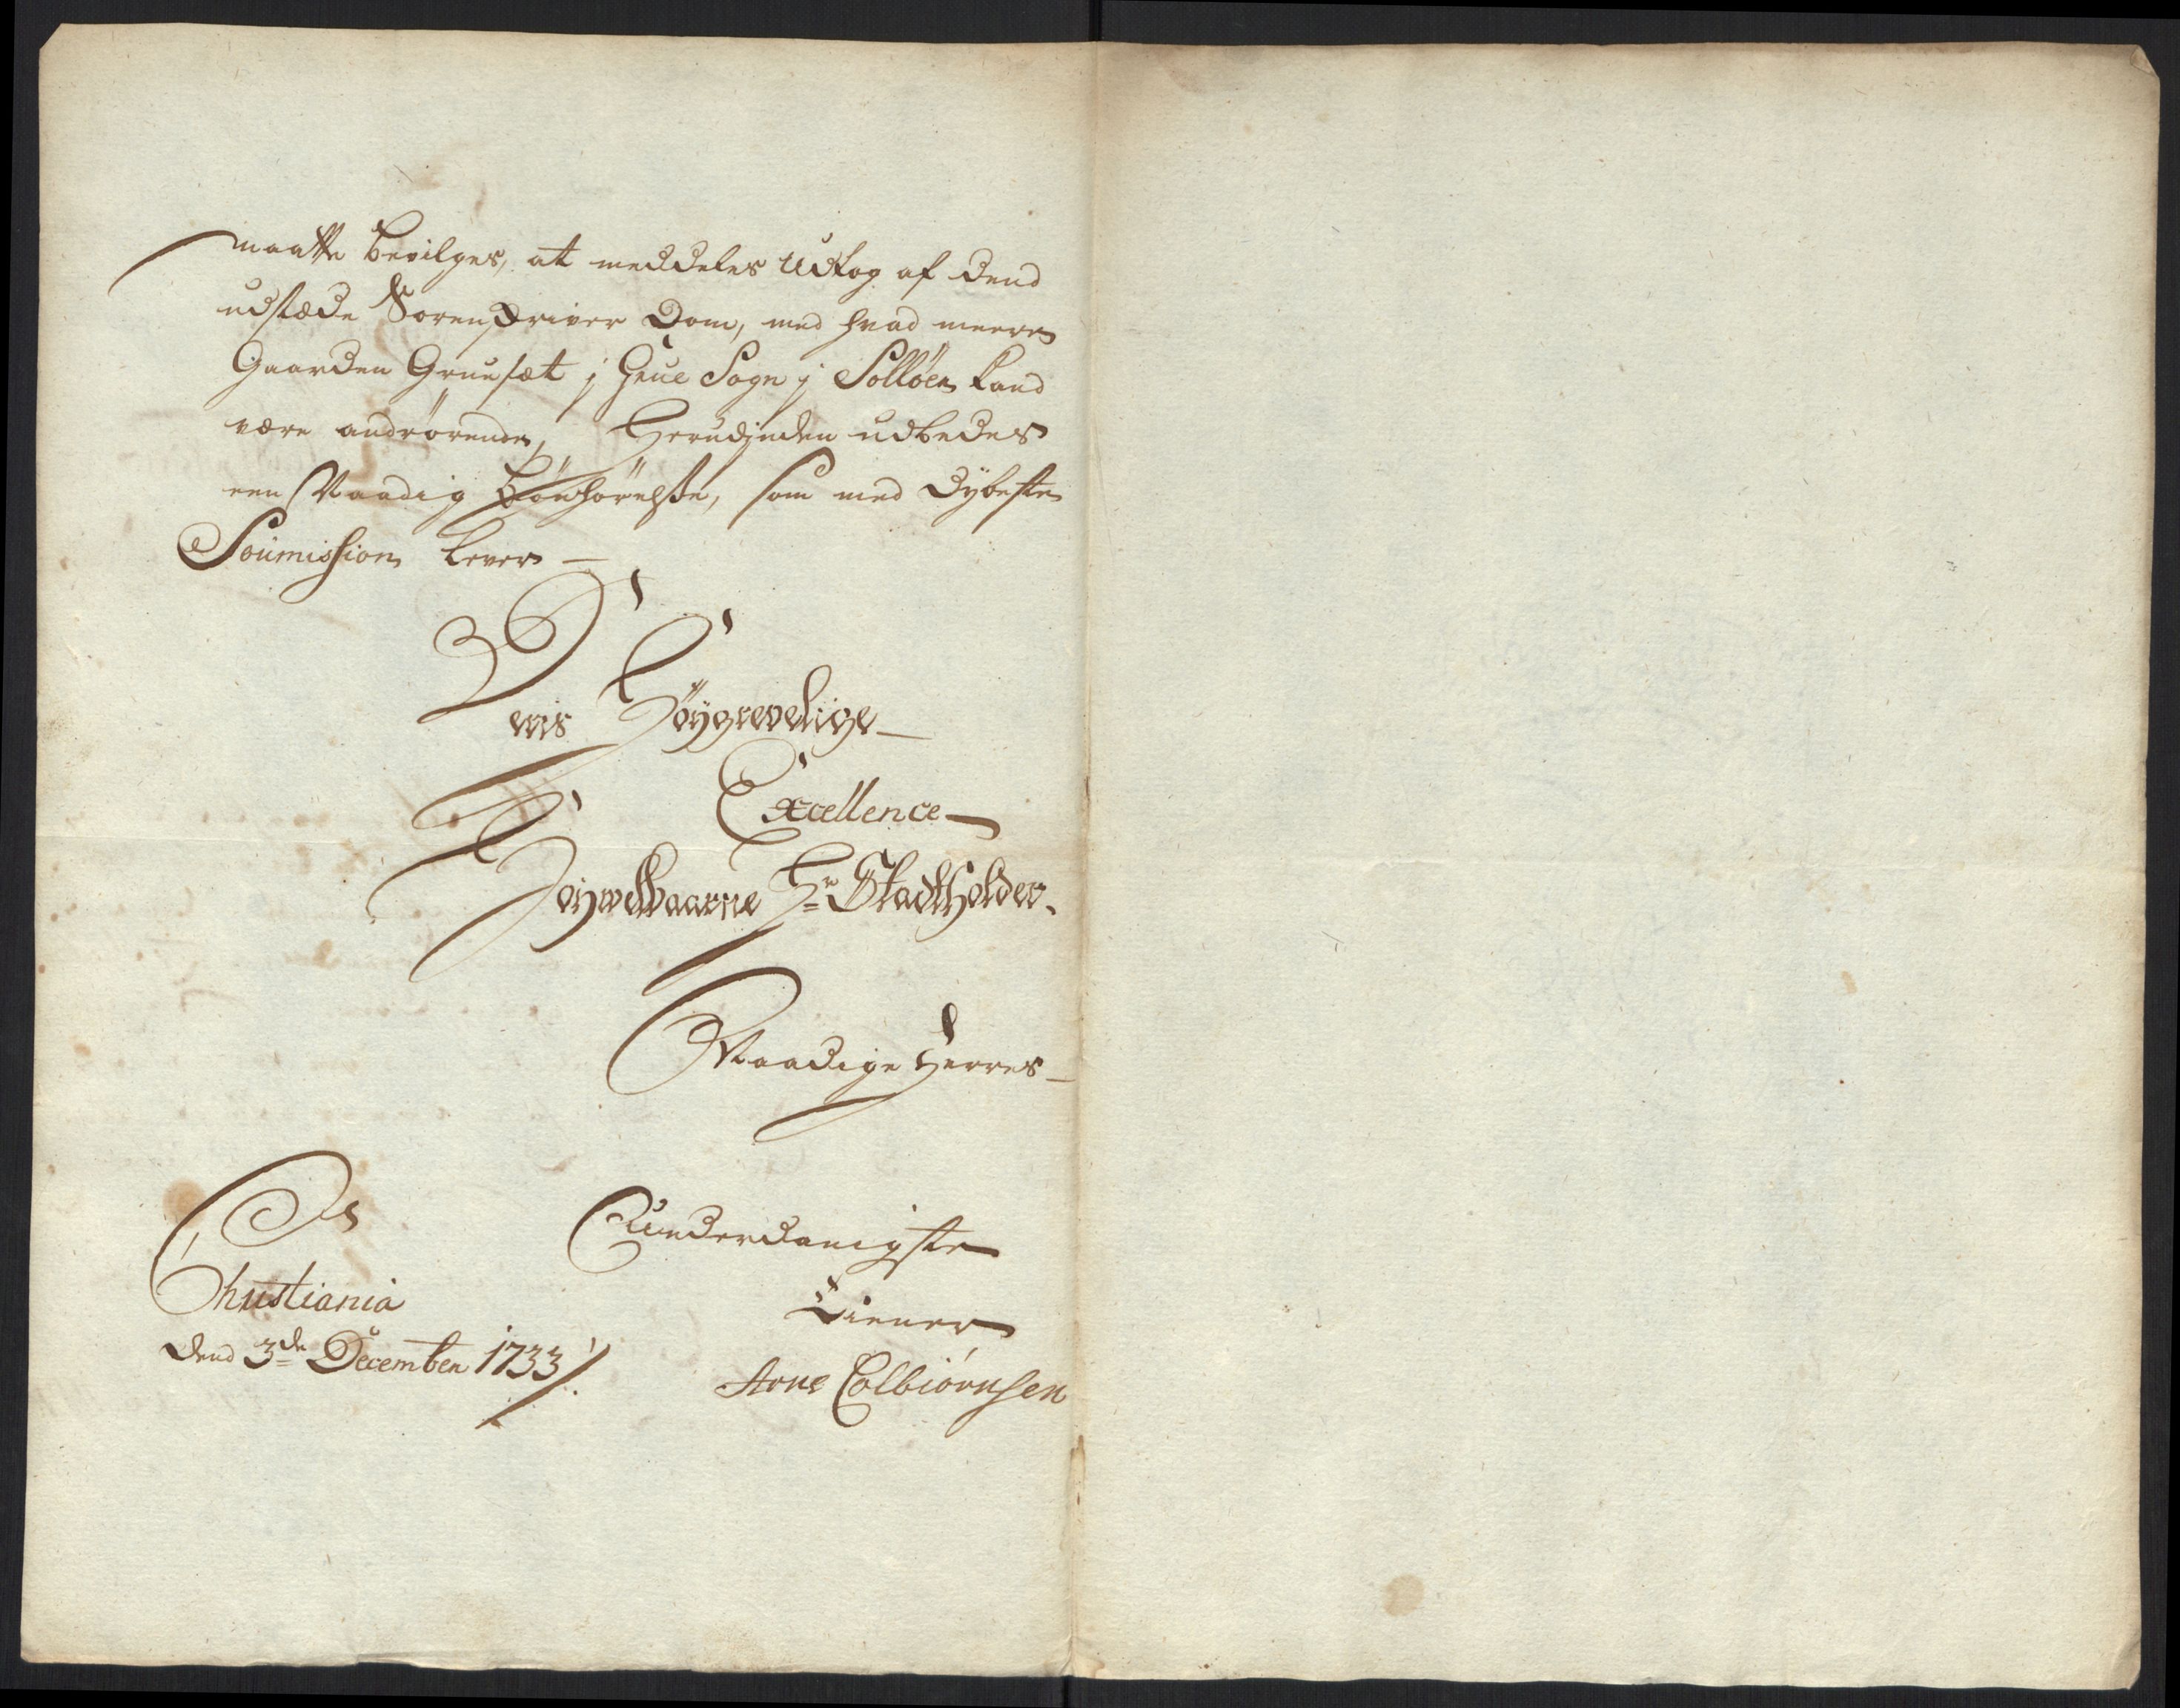 maatte bevilges, at meddeles Udtog af dend
udstæde Sorenskriver Dom, med hvad meere
Gaarden Gruusæt j Grue Sogn j Solløer kand
være andrørende, Herudjnden udbedes
een Naadig bönhörelsse, som med dÿbeste
Soumission lever —
Deris Höygrevelige —
Excellence —
Höywelbaarne Hr Stadtholder.
Naadige Herres —
Christiania
dend 3de December 1733 /.
underdanigste
Tiener
Arne Colbiörnsen